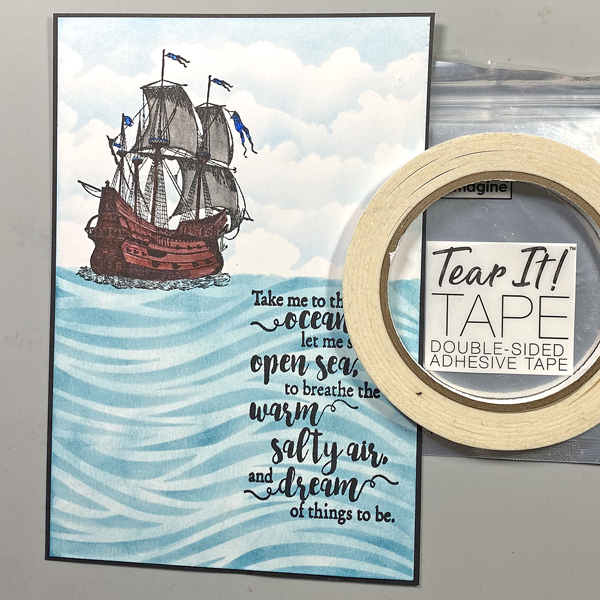 Take me to
ocean
let me
open sea,
to breathe the
warm
salty air,
and dream
of things to be.
Tear It!™
TAPE
DOUBLE-SIDED
ADHESIVE TAPE